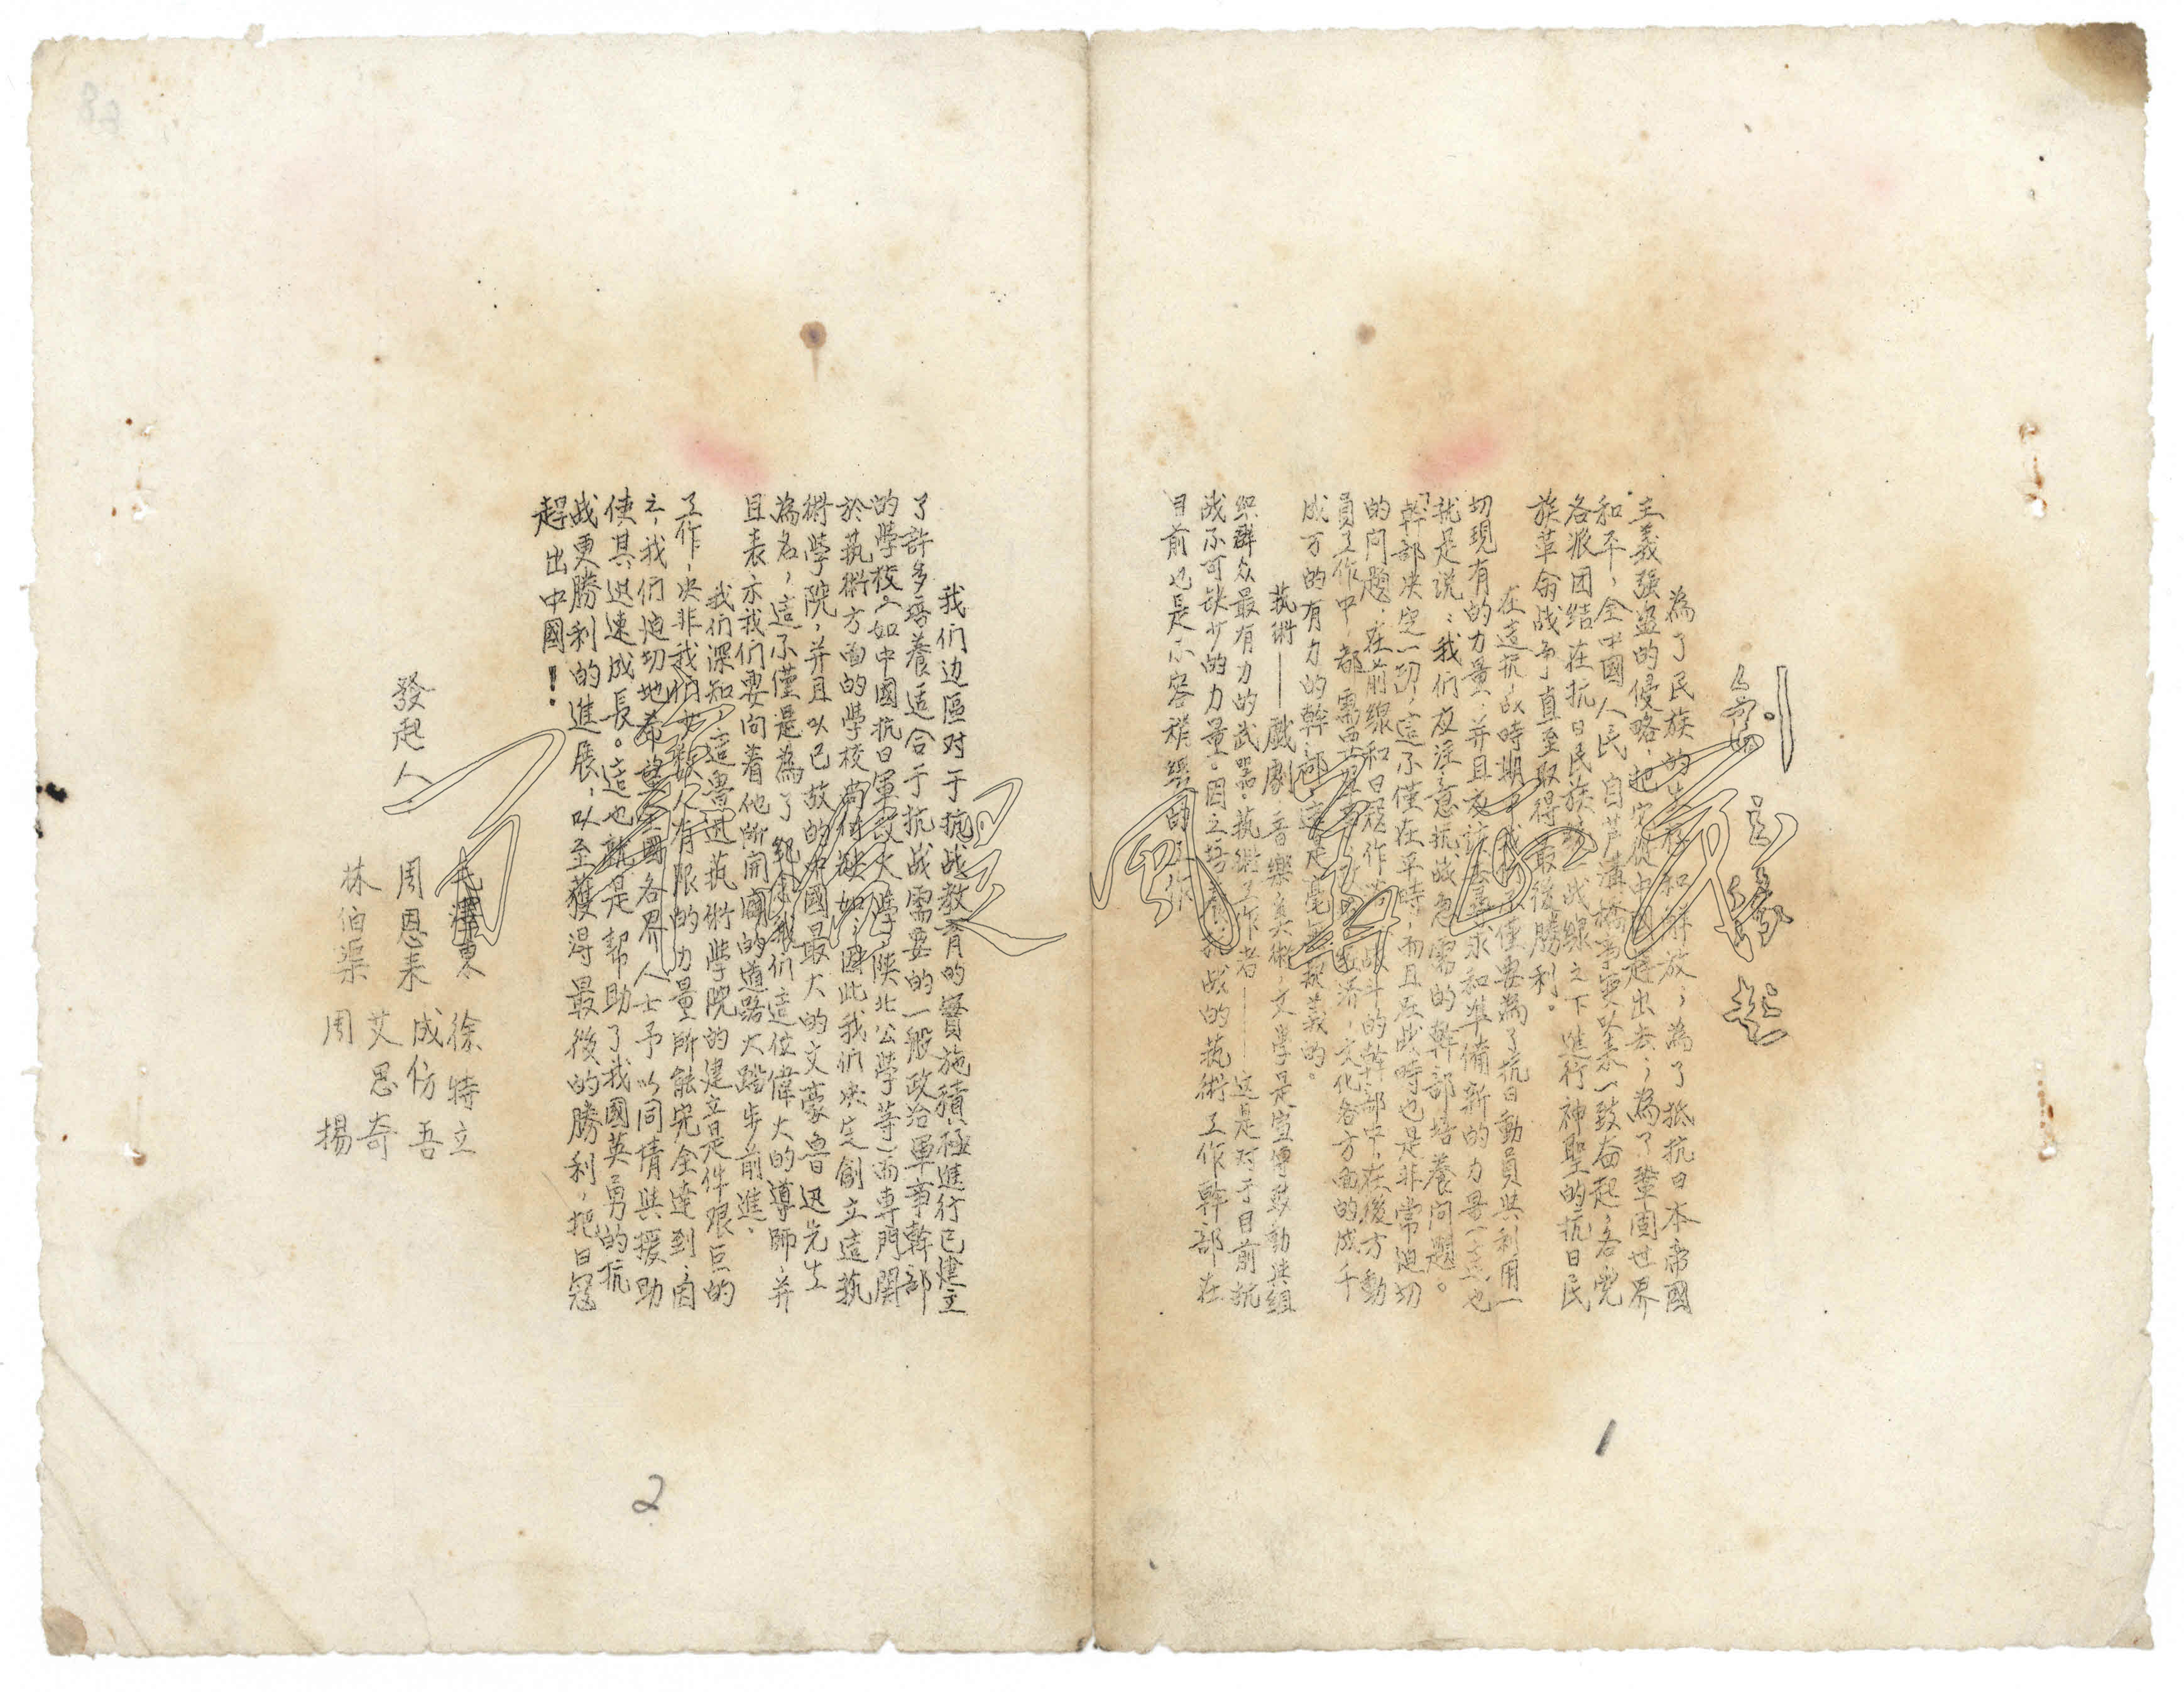 創立緣起
為了民族的生存和解放，為了抵抗日本帝國
主義强盗的侵略，把它從中國趕出去，為了鞏固世界
和平，全中國人民自芦溝橋事變以來一致奋起，各党
各派团结在抗日民族統一战線之下進行神聖的抗日民
族革命战争，直至取得最後勝利。
在這抗战時期中，我們不僅要為了抗日動員與利用一
切現有的力量，并且应該去尋求和準備新的力量，這也
就是说：我们应注意抗战急需的幹部培養问题。
「幹部决定一切，這不僅在平時，而且在战時也是非常迫切
的问题，在前線和日寇作
战斗的幹部中，在後方動
員工作中，都需要
經济，文化各方面的成千
成万的有力的幹部，這是毫無疑義的。
芸術——戲劇，音樂，美術，文學是宣傳鼓動與組
织群众最有力的武器。芸術工作者——这是对于目前抗
战不可缺少的力量。因之培養抗战的芸術工作幹部在
目前也是不容稍緩的工作。
我们边區对于抗战教育的實施積極進行，已建立
了許多培養适合于抗战需要的一般政治軍事幹部
的學校（如中國抗日軍政大學，陝北公學等）而專門関
於芸術方面的學校尚付缺如；因此我们决定創立這芸
術學院，并且以已故的中國最大的文豪魯迅先生
為名，這不僅是為了紀念我们這位偉大的導師，并
且表示我们要向着他所開闢的道路大踏步前進。
我们深知，這魯迅芸術學院的建立是件艰巨的
工作，决非我们少數人有限的力量所能完全達到，因
之，我们迫切地希望全國各界人士予以同情與援助
使其迅速成長。這也就是帮助了我國英勇的抗
战更勝利的進展，以至獲得最後的勝利，把日寇
趕出中國！
發起人
毛澤東 徐特立
周恩来 成仿吾
林伯渠 艾思奇
周揚
1
2